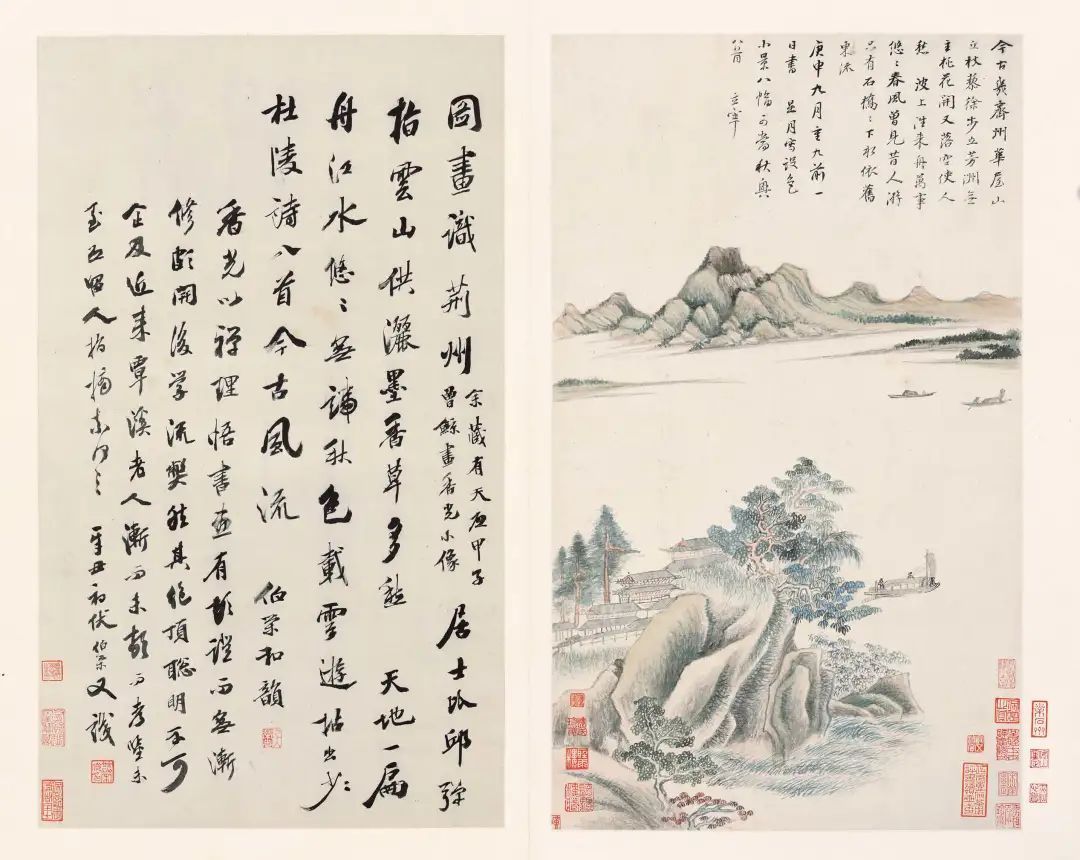 今古幾齊州華屋山
丘杖藜徐步立芳洲無
主桃花開又落空使人
愁 波上往來舟萬事
悠〻春風曾見昔人游
只有石橋〻下水依舊
東流
庚申九月重九前一
日書 是月寫設色
小景八幅可當秋興
八首 玄宰
圖畫識荊州
余藏有天啟甲子
曾鯨畫香光小像
居士林邱彈
指雲山供灑墨香草多愁 天地一扁
舟江水悠〻無端秋色載雲遊拈出少〻
杜陵詩八首今古風流 伯榮和韻
香光以禪理悟書畫有頓證而無漸
修頗開後學流弊然其絕頂聰明不可
企及近來覃溪老人漸而未頓而考亦
人指摘 辛丑初伏伯榮又識